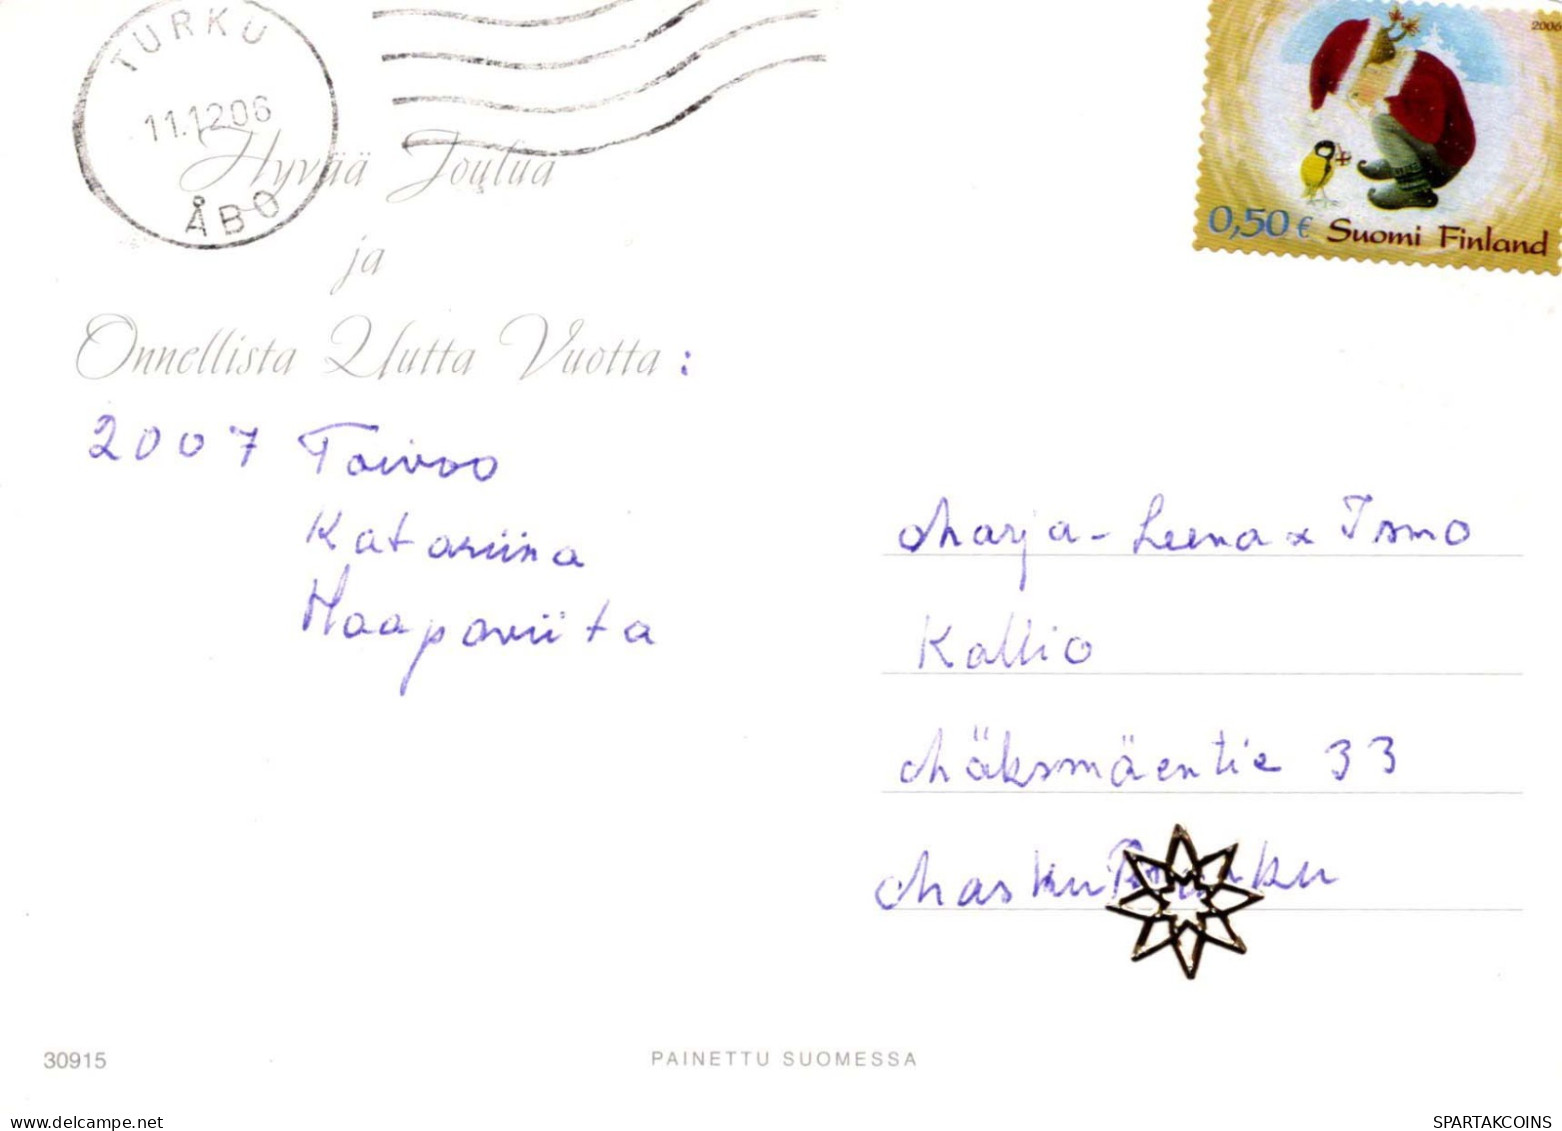 TURKU
11.12.06
ÅBO
2006
0,50 € Suomi Finland
Hyvää Joulua
ja
Onnellista Uutta Vuotta :
2007 Toivoo
Katariina
Haapaviita
Marja-Leena & Ismo
Kallio
Mäksmäentie 33
Masku
30915
PAINETTU SUOMESSA
delcampe.net
SPARTAKCOINS